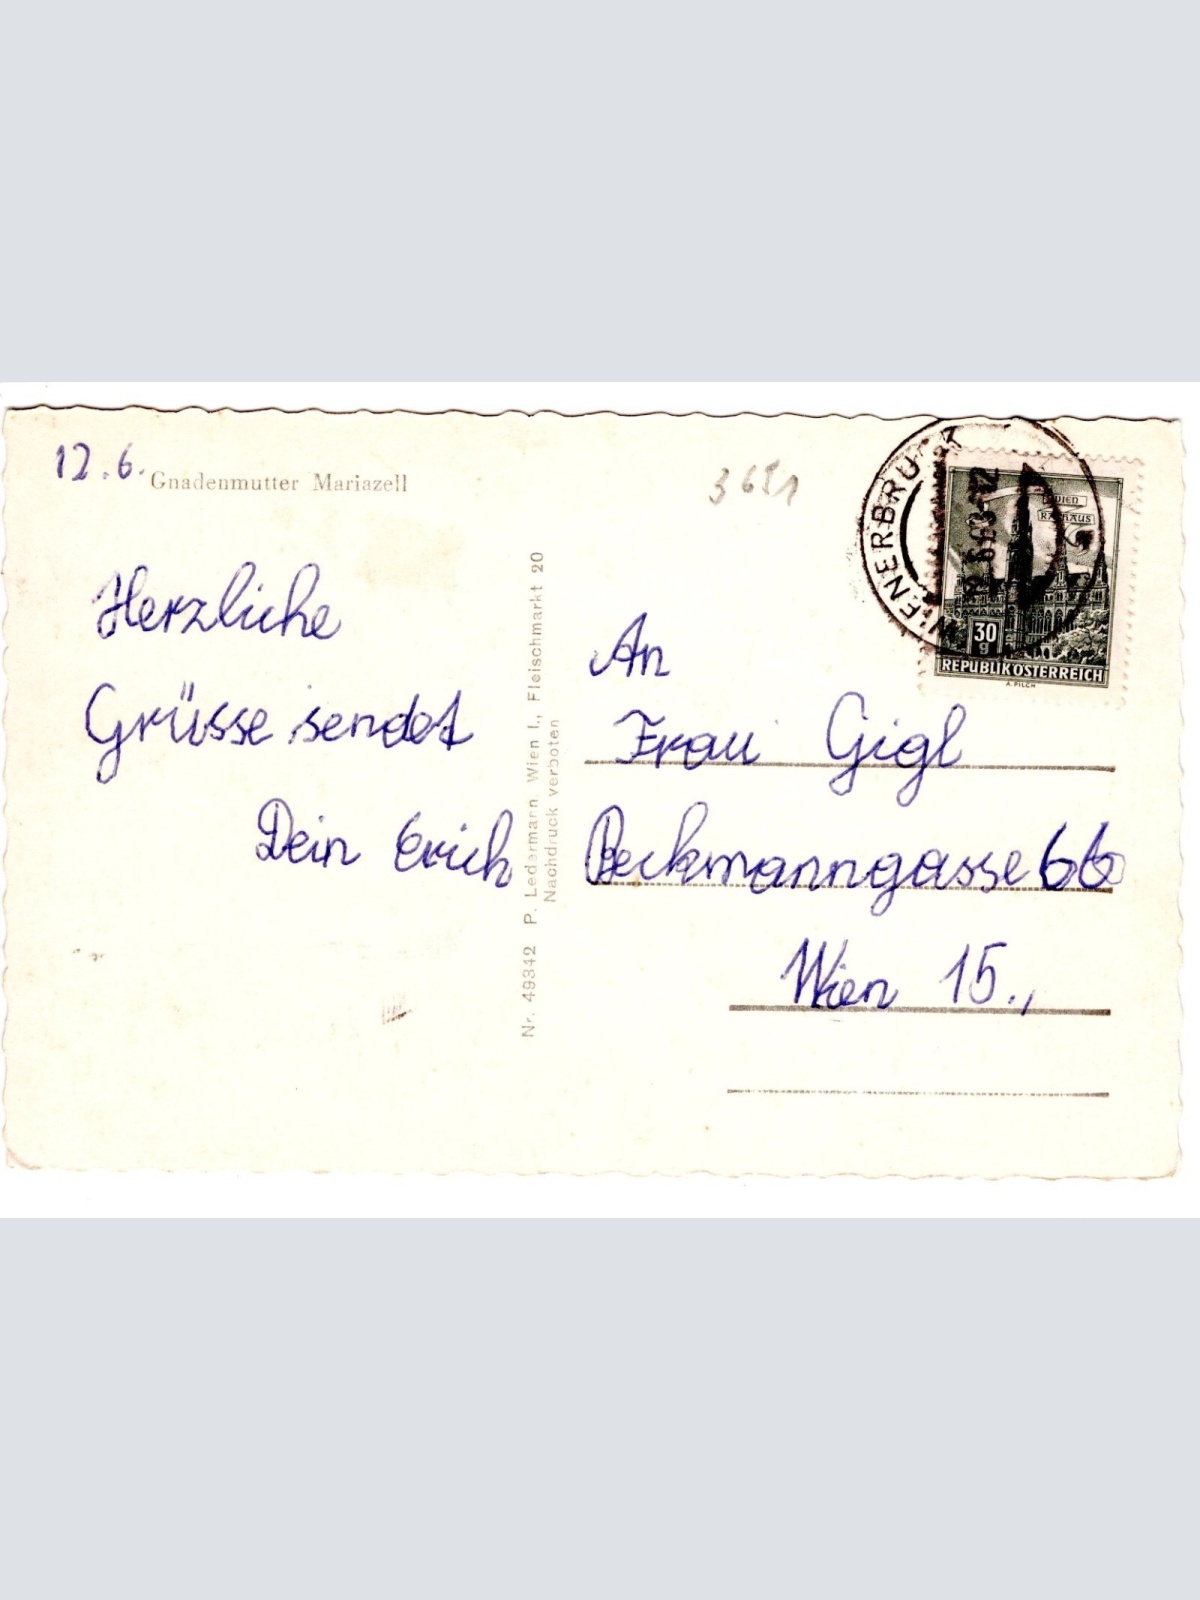 12.6.
Gnadenmutter Mariazell
Herzliche
Grüsse sendet
Dein Erich
Nr. 49342 P. Ledermann, Wien I., Fleischmarkt 20
Nachdruck verboten
3651
WIENERBRUCK
WIEN
RATHAUS
30
g
REPUBLIK ÖSTERREICH
A. PILCH
An
Frau Gigl
Beckmanngasse 66
Wien 15.,